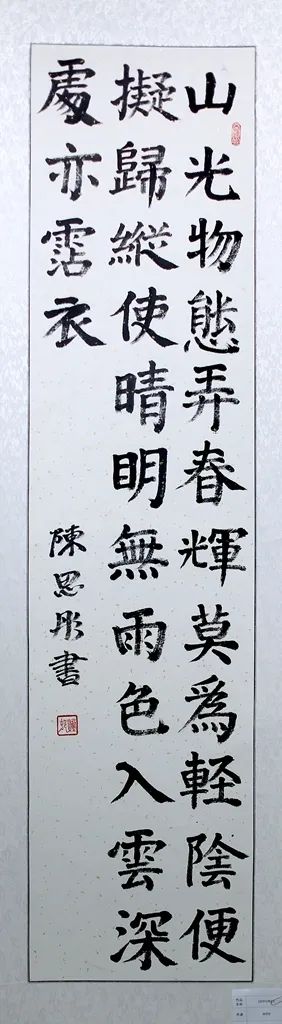 山光物態弄春輝莫爲輕陰便
擬歸縱使晴明無雨色入雲深
處亦霑衣
陳思彤書